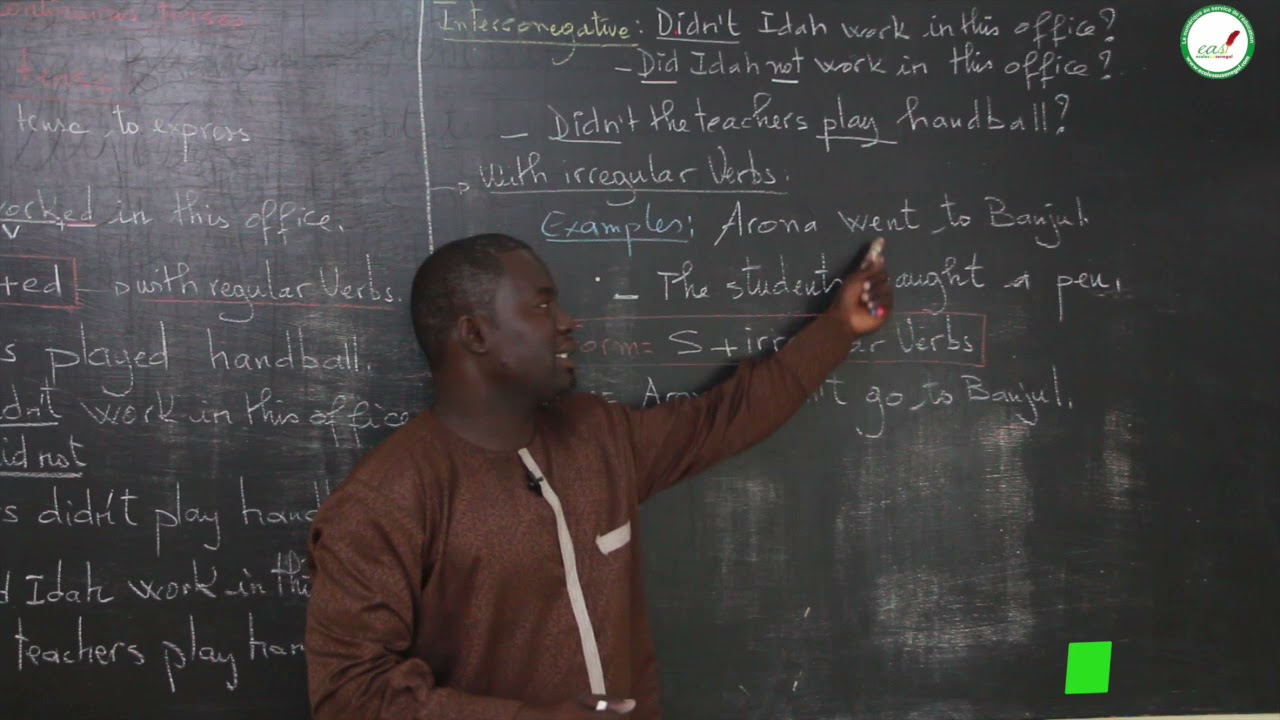 tense
tense, to express
worked in this office.
V
+ed → with regular Verbs.
s played handball.
didn't work in this office
did not
s didn't play hand
d Idah work in this
teachers play han
Interronegative: Didn't Idah work in this office?
- Did Idah not work in this office?
- Didn't the teachers play handball?
→ With irregular Verbs.
Examples: Arona went to Banjul.
- The student aught a pen.
orm= S + irre ar Verbs
= Aro 't go to Banjul.
Le numérique au service de l'éducation
eas
ecolesausenegal
www.ecolesausenegal.com